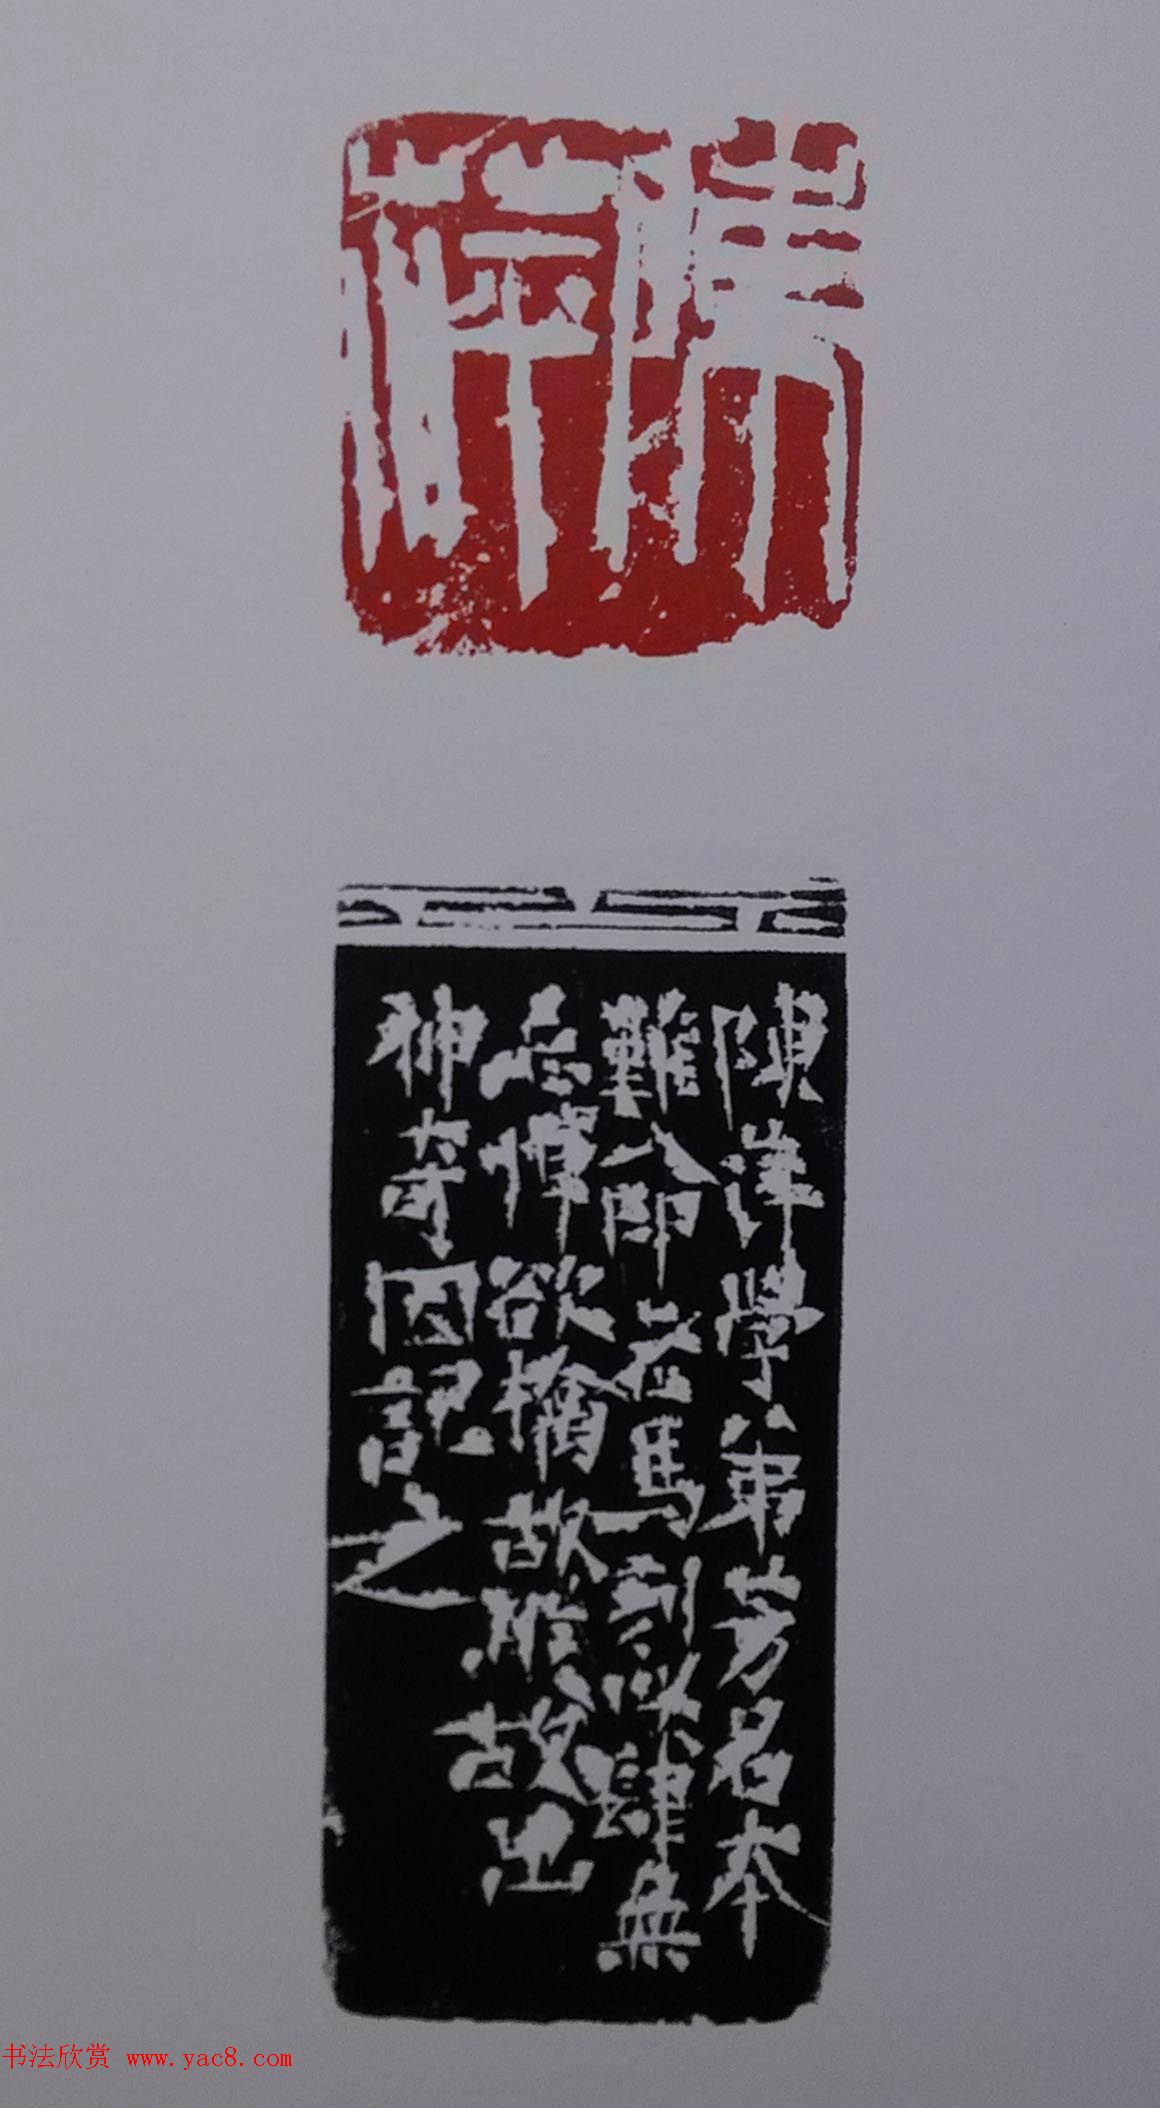 陳洋學弟芳名本
難入印 若馬到以肆無
忌憚 欲擒故 故出
神奇因記之
书法欣赏 www.yac8.com